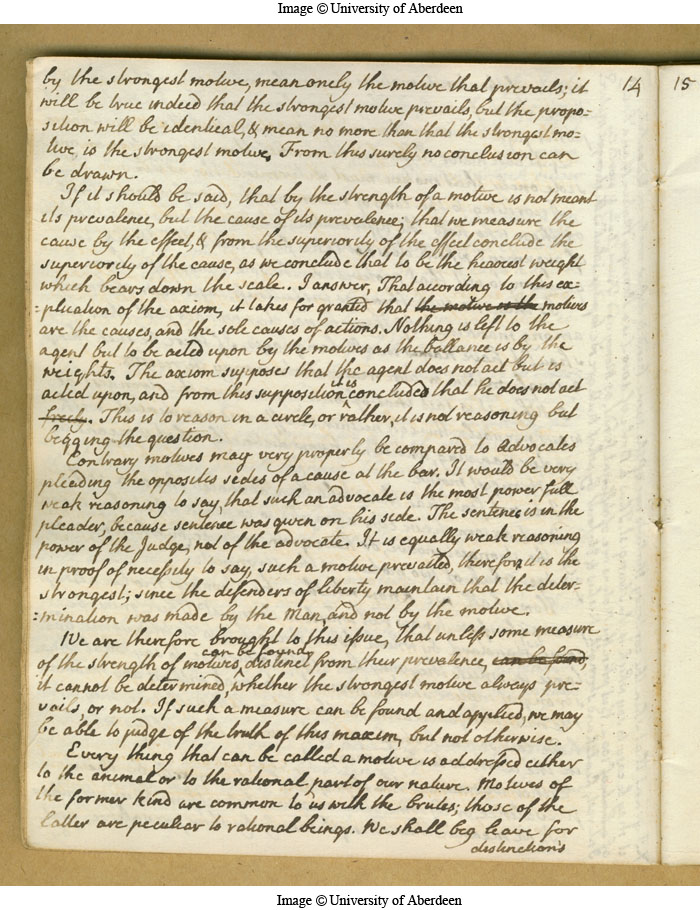 Image © University of Aberdeen
14
15
by the strongest motive, mean onely the motive that prevails; it
will be true indeed that the strongest motive prevails, but the propo=
sition will be identical, & mean no more than that the strongest mo-
tive is the strongest motive. From this surely no conclusion can
be drawn.
If it should be said, that by the strength of a motive is not meant
its prevalence, but the cause of its prevalence; that we measure the
cause by the effect, & from the superiority of the effect conclude the
superiority of the cause, as we conclude that to be the heaviest weight
which bears down the scale. I answer, That according to this ex=
=plication of the axiom, it takes for granted that the motive is the motives
are the causes, and the sole causes of actions. Nothing is left to the
agent but to be acted upon by the motives as the ballance is by the
weights. The axiom supposes that the agent does not act but is
acted upon, and from this supposition it is concluded that he does not act
freely. This is to reason in a circle, or rather, it is not reasoning but
begging the question.
Contrary motives may very properly be compared to Advocates
pleading the opposites sides of a cause at the bar. It would be very
weak reasoning to say, that such an advocate is the most power full
pleader, because sentence was given on his side. The sentence is in the
power of the Judge, not of the advocate. It is equally weak reasoning
in proof of necessity to say, such a motive prevailed, therefore it is the
strongest; since the defenders of liberty maintain that the deter-
=mination was made by the Man, and not by the motive.
We are therefore brought to this issue, that unless some measure
can be found
of the strength of motives, distinct from their prevalence, can be found,
it cannot be determined, whether the strongest motive always pre-
vails, or not. If such a measure can be found and applied, we may
be able to judge of the truth of this maxim, but not otherwise.
Every thing that can be called a motive is addressed either
to the animal or to the rational part of our nature. Motives of
the former kind are common to us with the brutes; those of the
latter are peculiar to rational beings. We shall beg leave for
distinction's
Image © University of Aberdeen